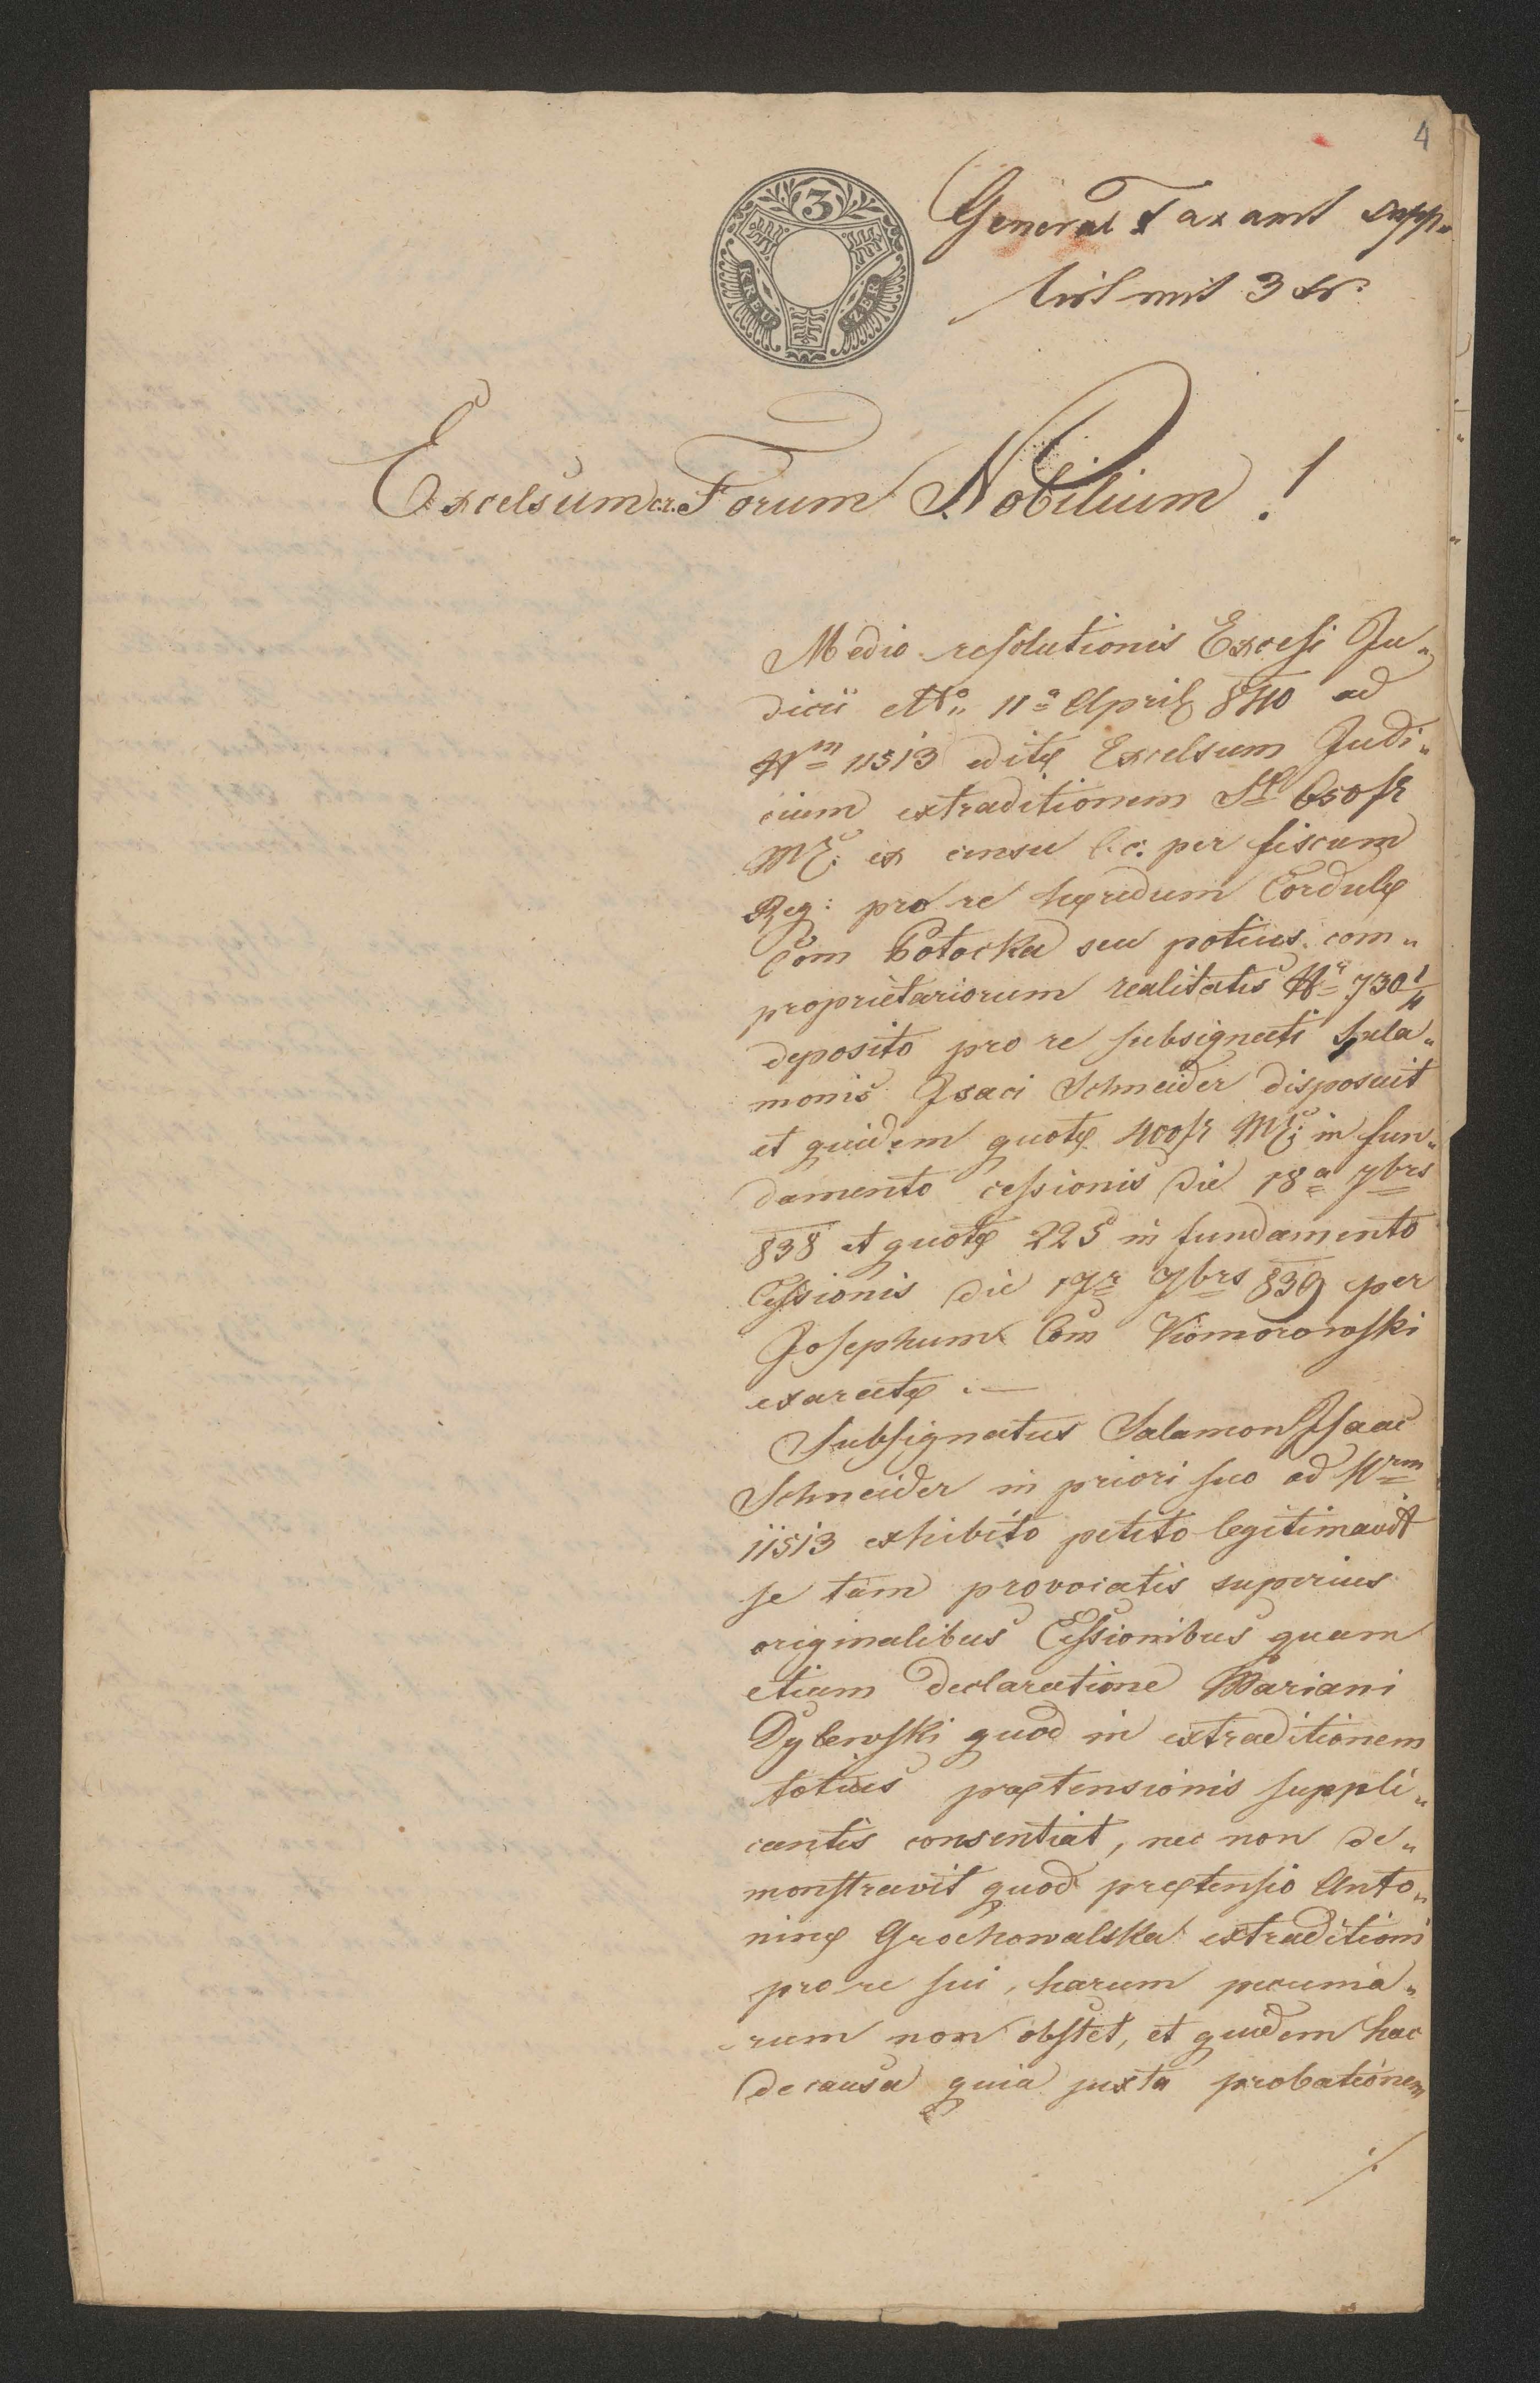 4
3
KREU
ZER
General Taxamt supp„
mit 3 xr.
Excelsum c.r. Forum Nobilium!
Medio resolutionis Excesi Ju„
dicii ddto 11a April 840 ad
Nm 11513 editæ Excelsum Judi„
cium extraditionem St 650 fr
MC: ex censu c.c. per fiscum
Reg: pro re hæredum Cordulæ
Com Potocka seu potius com„
proprietariorum realitatis Nr 730 1/4
deposito pro re subsignati Sala„
monis Isaci Schneider disposuit
et quidem quotæ 400 fr MC: in fun„
damento cessionis die 18a 7brs
838 et quotæ 225 in fundamento
Cessionis die 7brs 839 per
Josephum Com Komorowski
exaratæ .—
Subsignatus Salamon Isaac
Schneider in priori suo ad Nrm
11513 exhibito petito legitimavit
se tam provocatis superius
originalibus Cessionibus quam
etiam declaratione Mariani
Dylewski quod in extraditionem
totius prætensionis suppli„
cantis consentiat, nec non de„
monstravit quod prætensio Anto„
ninæ Grochowalska extraditioni
pro re sui, harum pecunia„
rum non obstet, et quidem hac
de causa quia juxta probationem
./.